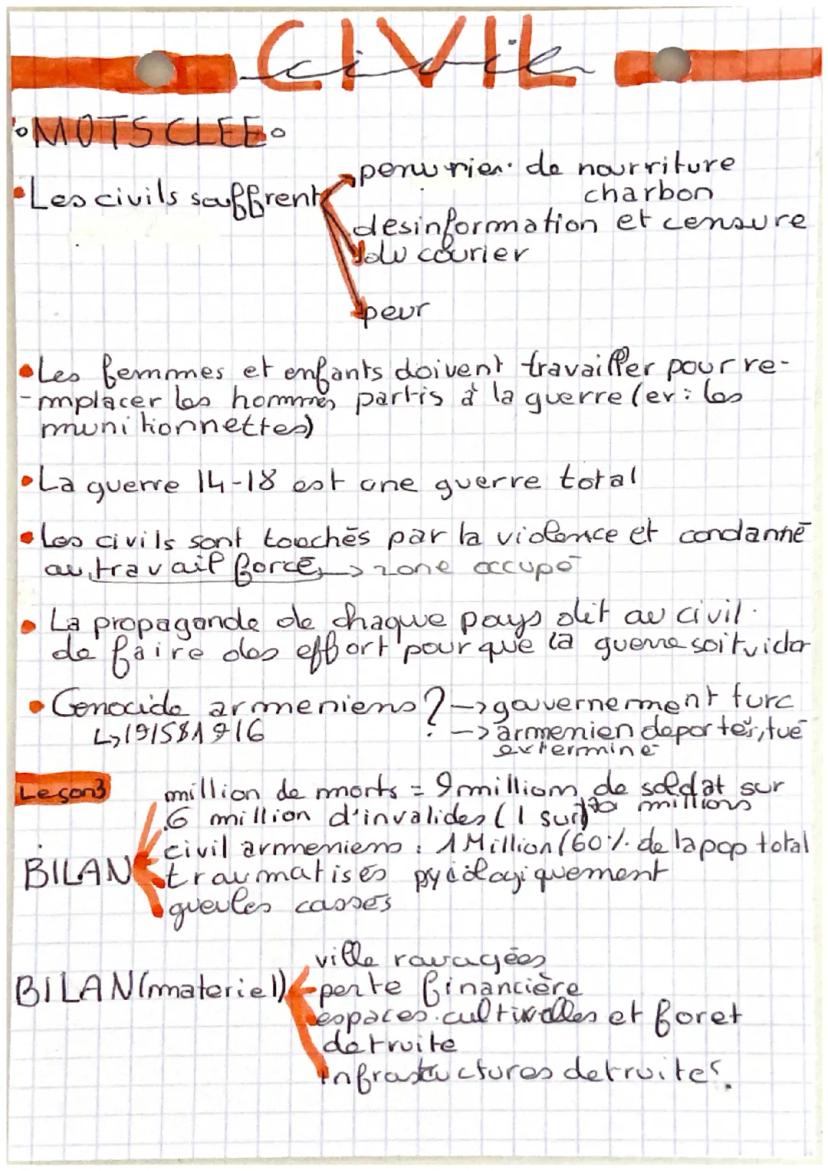 CIVIL
civil
MOTS CLEE
Les civils souffrent
penurier de nourriture
charbon
desinformation et censure
du courier
peur
Les femmes et enfants doivent travailler pour re-
-mplacer les hommes partis à la guerre (ex: les
munitionnettes)
La guerre 14-18 est une guerre total
Les civils sont touchés par la violence et condanné
au travail forcé → zone occupé
La propagande de chaque pays dit au civil
de faire des effort pour que la guerre soit
Genocide armeniens ? → gouvernement turc
↳ 1915 à 1916 → armenien deportés, tué
exterminé
Leçon 3
million de morts = 9 million de soldat sur
70 millions
6 million d'invalides (1 sur
BILAN
civil armeniens : 1 Million (60% de la pop total
traumatisés pycologiquement
gueules cassés
BILAN (materiel)
ville ravagées
perte financière
espaces cultivelles et foret
detruite
infrastuctures detruites.